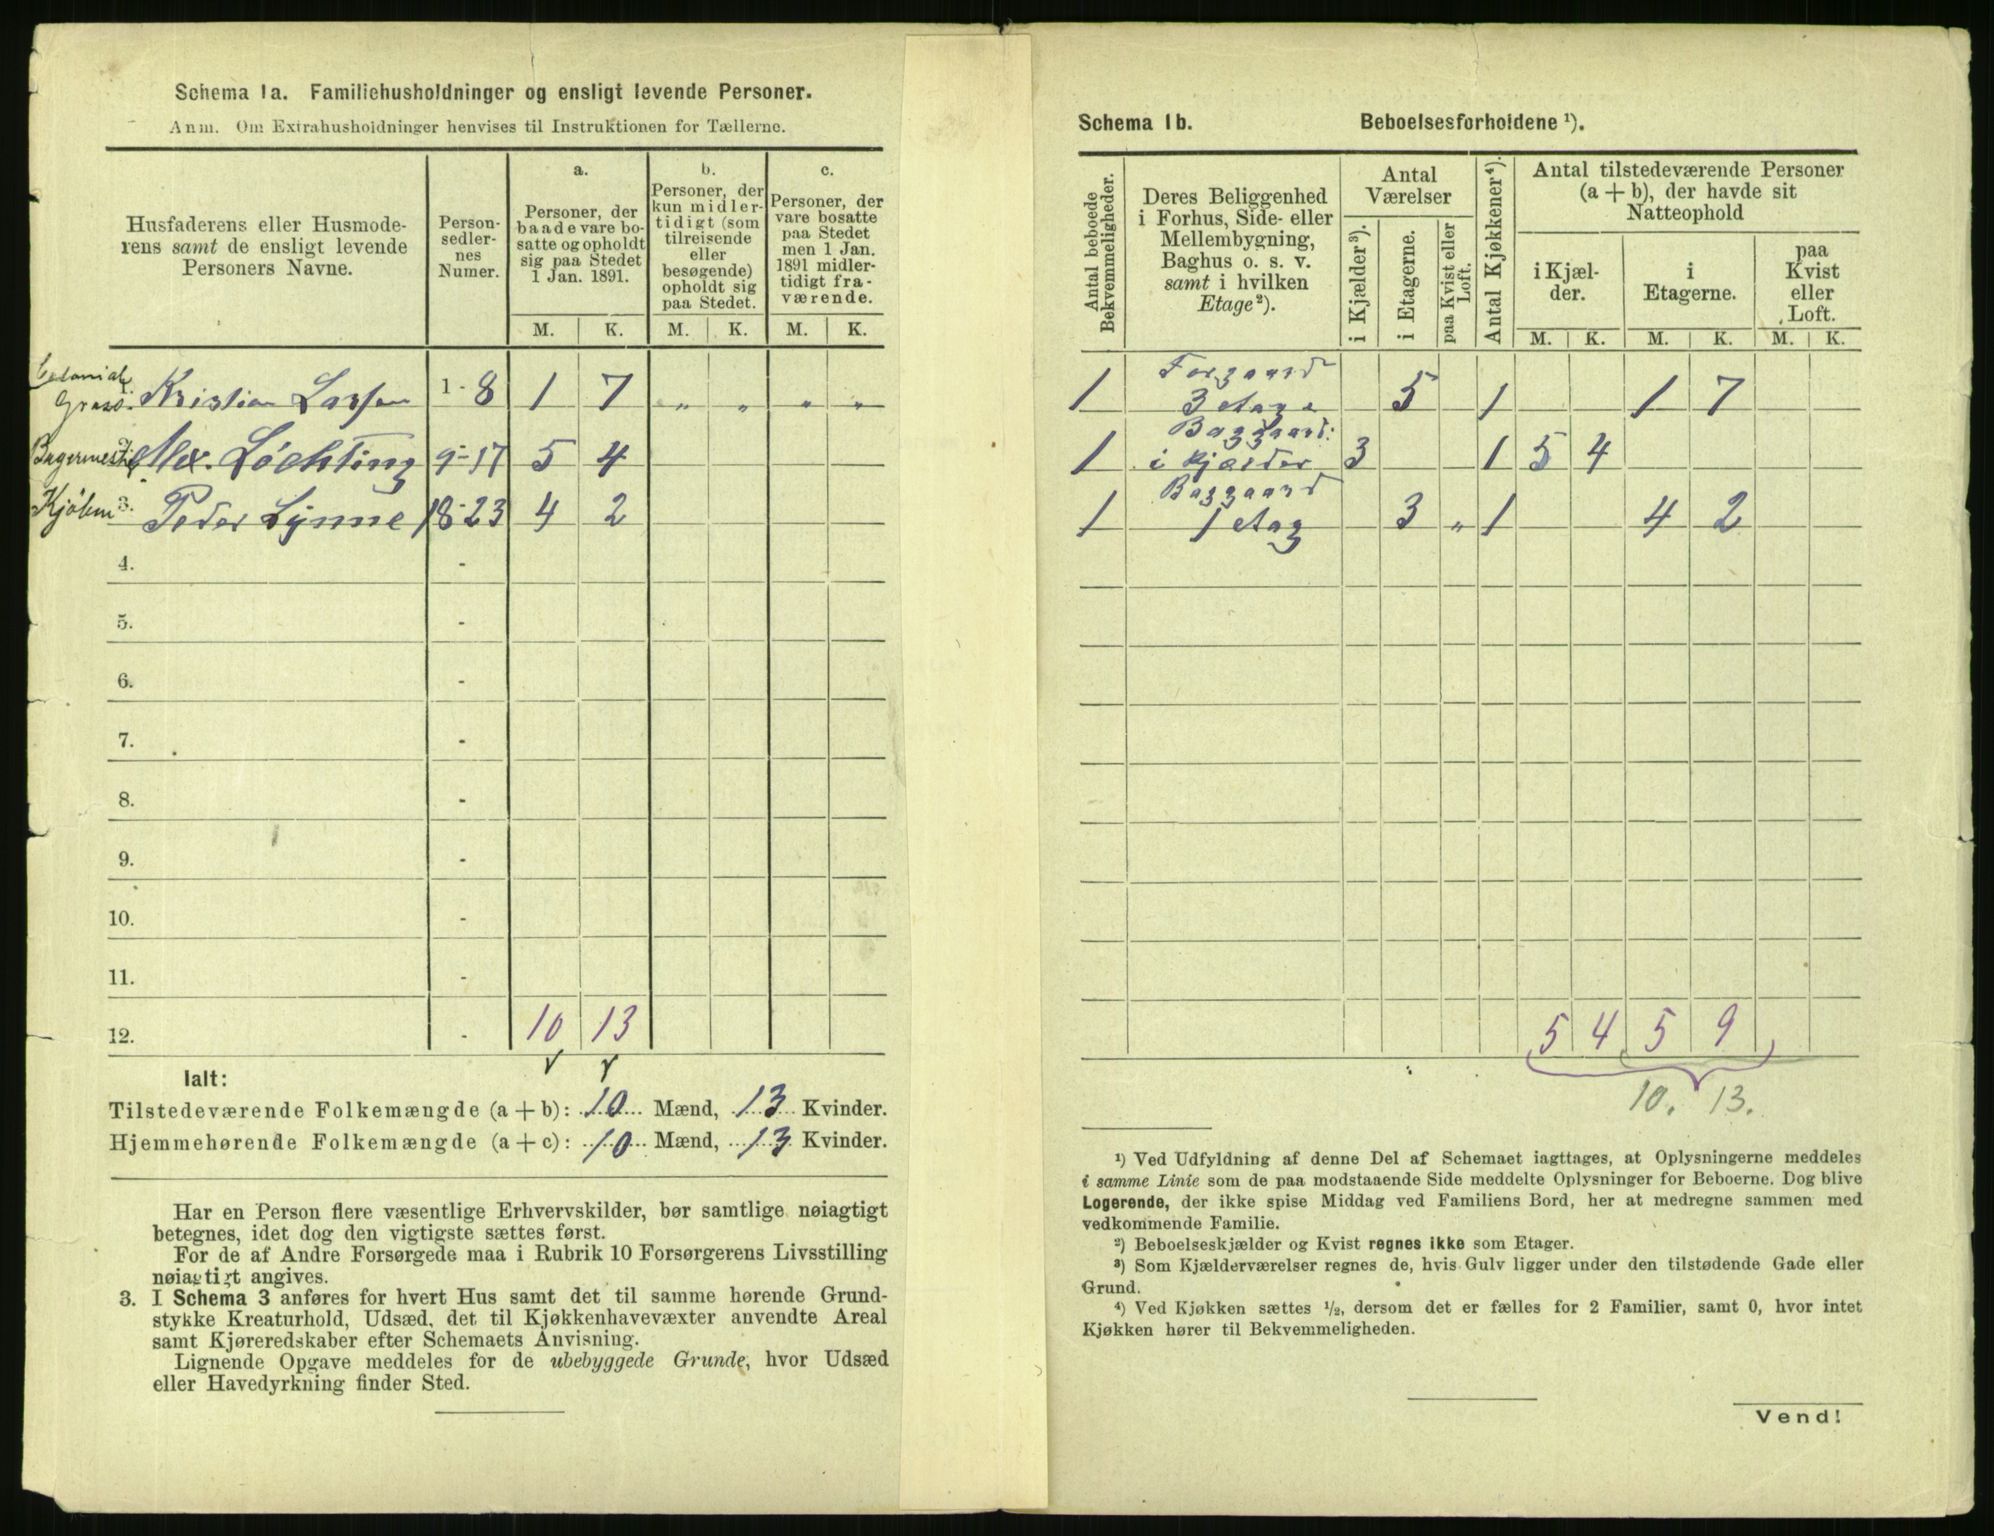 Schema 1a. Familiehusholdninger og ensligt levende Personer.
Anm. Om Extrahusholdninger henvises til Instruktionen for Tællerne.
Husfaderens eller Husmode-
rens samt de ensligt levende
Personers Navne.
Person-
sedler-
nes
Numer.
a.
Personer, der
baade vare bo-
satte og opholdt
sig paa Stedet
1 Jan. 1891.
b.
Personer, der
kun midler-
tidigt (som
tilreisende
eller
besøgende)
opholdt sig
paa Stedet.
c.
Personer, der
vare bosatte
paa Stedet
men 1 Jan.
1891 midler-
tidigt fra-
værende.
M. K. M. K. M. K.
Colonial
Kristian Larsen 1-8 1 7 „ „ „ „
Bagermest Alex. Löchting 9-17 5 4
Kjøbm 3. Peder Lynne 18-23 4 2
4. -
5. -
6. -
7. -
8. -
9. -
10. -
11. -
12. - 10 13
Ialt:
Tilstedeværende Folkemængde (a + b): 10 Mænd, 13 Kvinder.
Hjemmehørende Folkemængde (a + c): 10 Mænd, 13 Kvinder.
Har en Person flere væsentlige Erhvervskilder, bør samtlige nøiagtigt
betegnes, idet dog den vigtigste sættes først.
For de af Andre Forsørgede maa i Rubrik 10 Forsørgerens Livsstilling
nøiagtigt angives.
3. I Schema 3 anføres for hvert Hus samt det til samme hørende Grund-
stykke Kreaturhold, Udsæd, det til Kjøkkenhavevæxter anvendte Areal
samt Kjøreredskaber efter Schemaets Anvisning.
Lignende Opgave meddeles for de ubebyggede Grunde, hvor Udsæd
eller Havedyrkning finder Sted.
Schema 1b. Beboelsesforholdene ¹).
Antal beboede
Bekvemmeligheder.
Deres Beliggenhed
i Forhus, Side- eller
Mellembygning,
Baghus o. s. v.
samt i hvilken
Etage²).
Antal
Værelser
i Kjælder ³).
i Etagerne.
paa Kvist eller
Loft.
Antal Kjøkkener⁴).
Antal tilstedeværende Personer
(a + b), der havde sit
Natteophold
i Kjæl-
der.
i
Etagerne.
paa
Kvist
eller
Loft.
M. K. M. K. M. K.
Forgaard
1 3 etage 5 1 1 7
Baggaard:
1 i kjælder 3 1 5 4
Baggaard
1 1 etag 3 „ 1 4 2
5 4 5 9
10. 13.
¹) Ved Udfyldning af denne Del af Schemaet iagttages, at Oplysningerne meddeles
i samme Linie som de paa modstaaende Side meddelte Oplysninger for Beboerne. Dog blive
Logerende, der ikke spise Middag ved Familiens Bord, her at medregne sammen med
vedkommende Familie.
²) Beboelseskjælder og Kvist regnes ikke som Etager.
³) Som Kjælderværelser regnes de, hvis Gulv ligger under den tilstødende Gade eller
Grund.
⁴) Ved Kjøkken sættes ½, dersom det er fælles for 2 Familier, samt 0, hvor intet
Kjøkken hører til Bekvemmeligheden.
Vend!